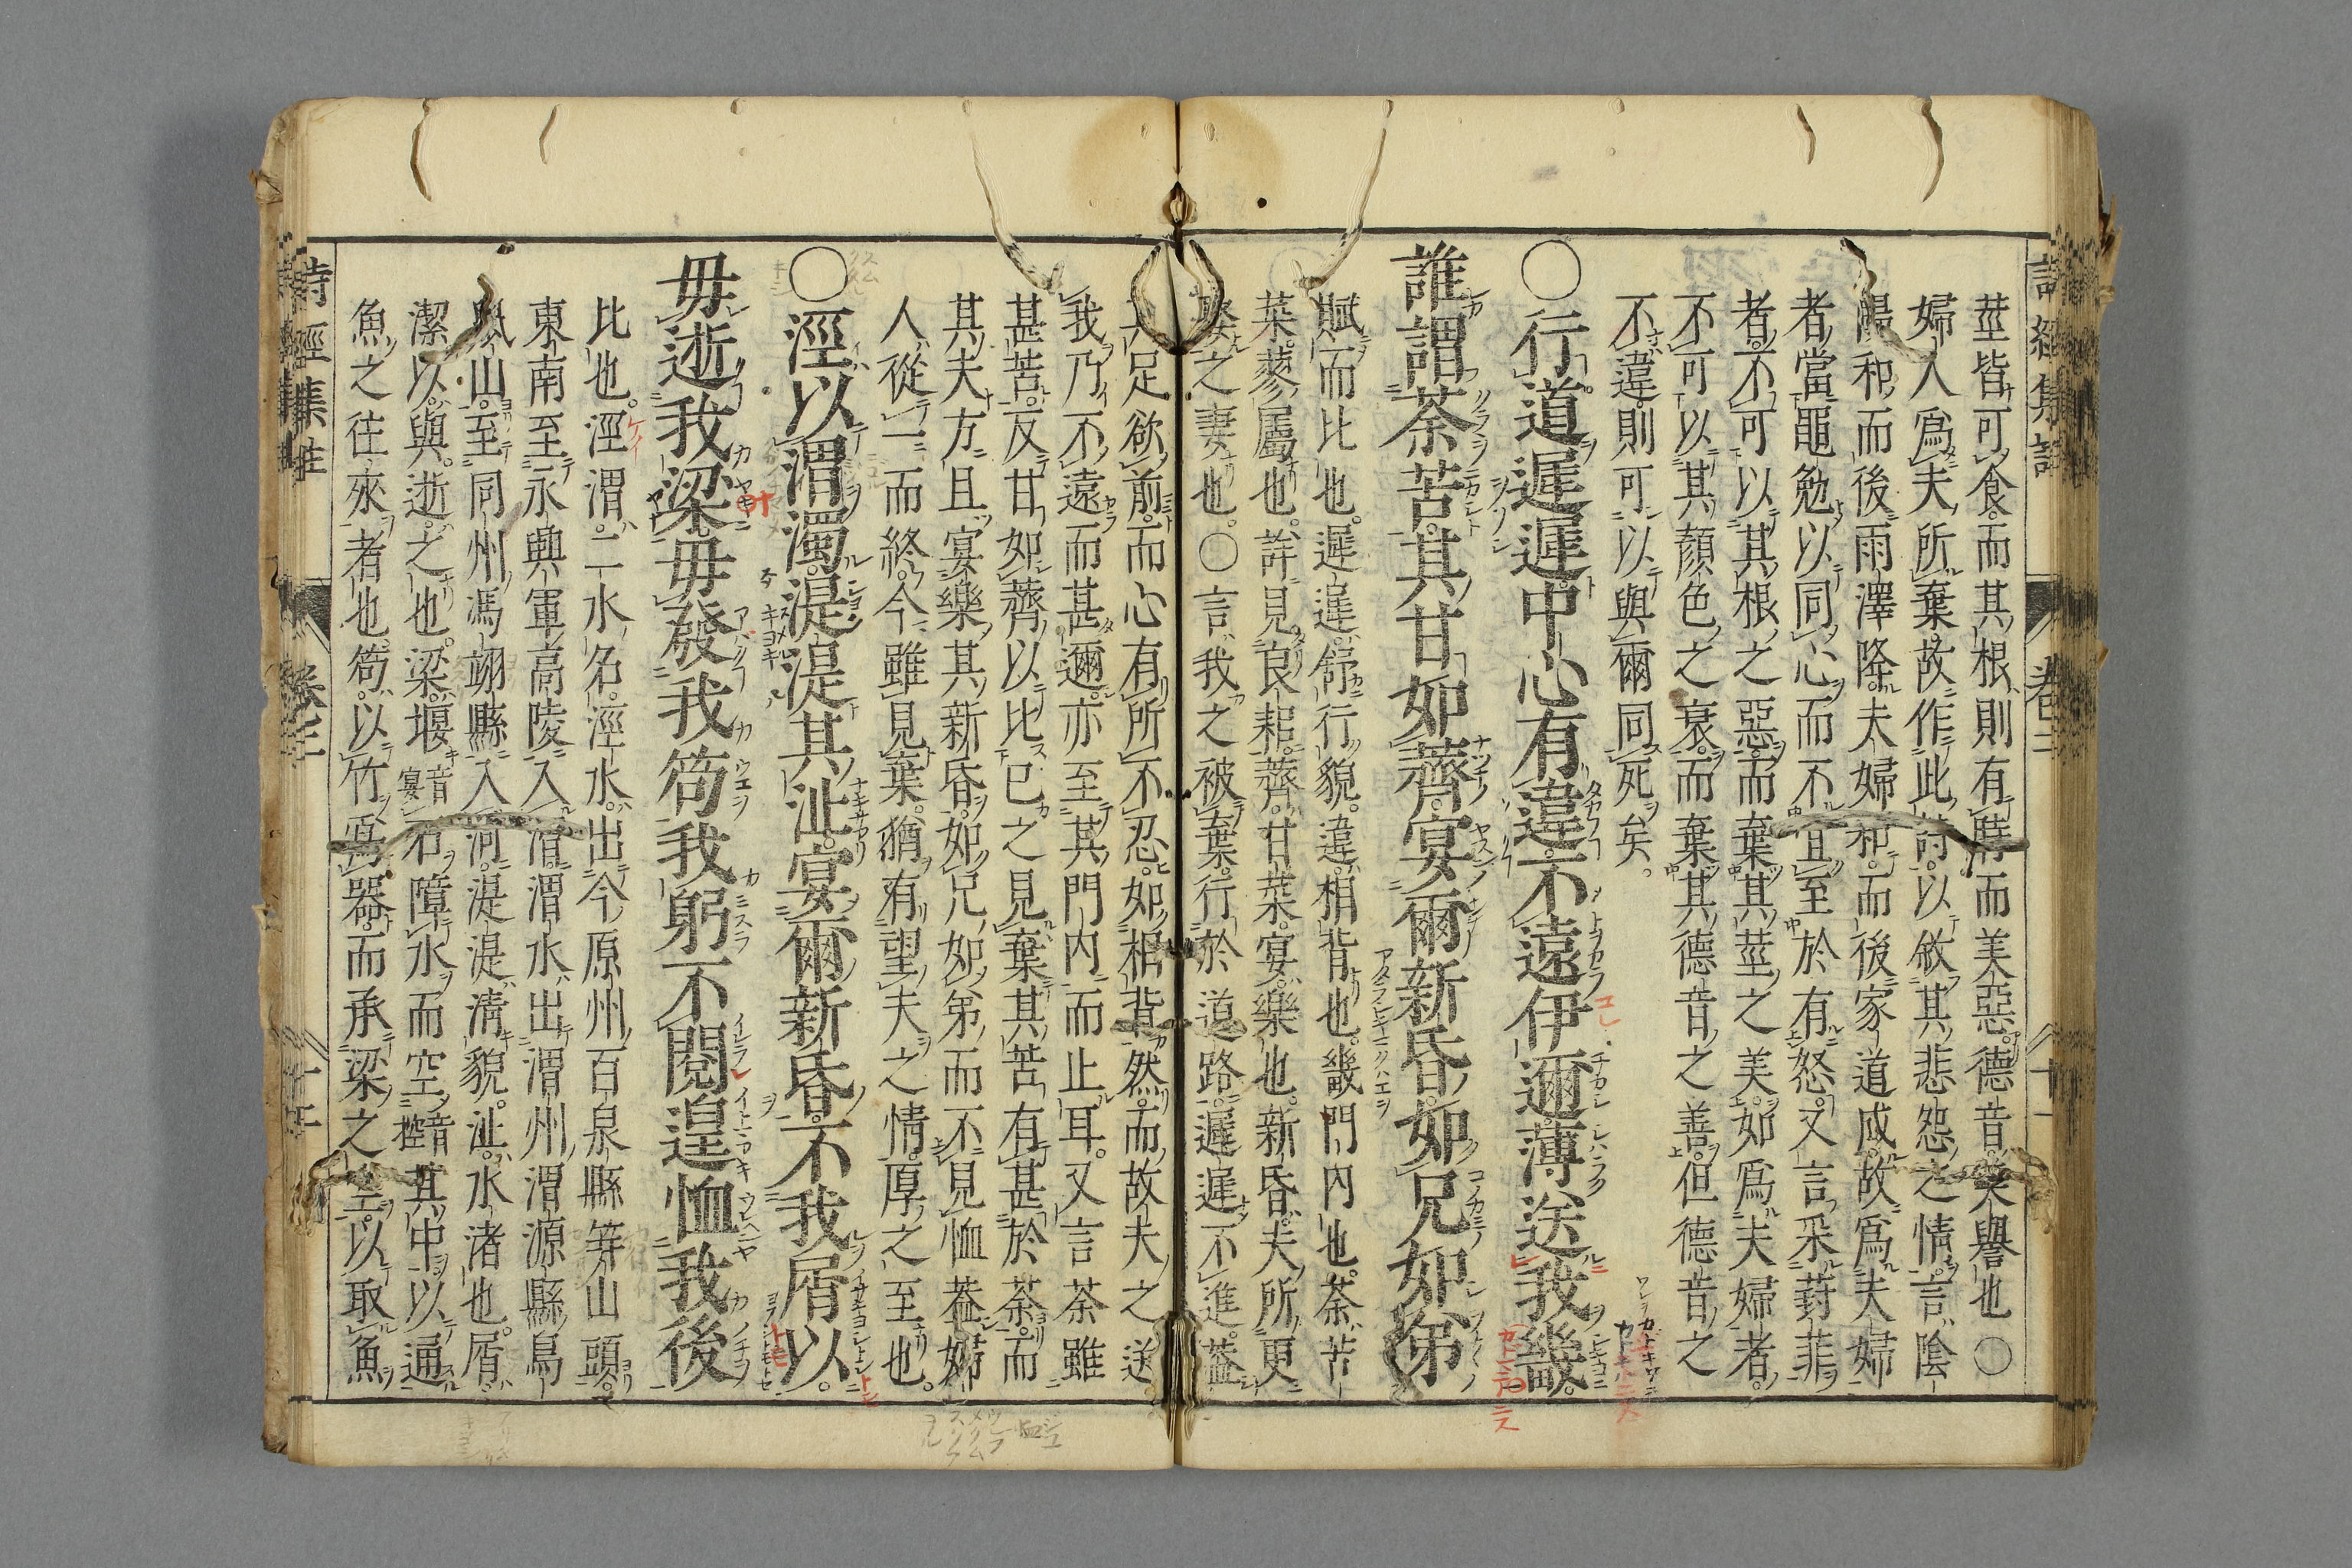 莖皆可食而其根則有時而美惡德音美譽也○
婦人爲夫所棄故作此詩以敘其悲怨之情言陰
陽和而後雨澤降夫婦和而後家道成故爲夫婦
者當黽勉以同心而不宜至於有怒又言采葑菲
者不可以其根之惡而棄其莖之美如爲夫婦者
不可以其顏色之衰而棄其德音之善但德音之
不違則可以與爾同死矣
○行道遲遲中心有違不遠伊邇薄送我畿
誰謂荼苦其甘如薺宴爾新昏如兄如弟
賦而比也遲遲舒行貌違相背也畿門內也荼苦
菜蓼屬也詳見良耜薺甘菜宴樂也新昏夫所更
娶之妻也○言我之被棄行於道路遲遲不進蓋
其足欲前而心有所不忍如相背然而故夫之送
我乃不遠而甚邇亦至其門內而止耳又言荼雖
甚苦反甘如薺以比己之見棄其苦有甚於荼而
其夫方且宴樂其新昏如兄如弟而不見恤蓋婦
人從一而終今雖見棄猶有望夫之情厚之至也
○涇以渭濁湜湜其沚宴爾新昏不我屑以
毋逝我梁毋發我笱我躬不閱遑恤我後
比也涇渭二水名涇水出今原州百泉縣笄山頭
東南至永興軍高陵入渭渭水出渭州渭源縣鳥
鼠山至同州馮翊縣入河湜湜清貌沚水渚也屑
潔以與逝之也梁堰音宴石障水而空音控其中以通
魚之往來者也笱以竹爲器而承梁之空以取魚
詩經集註
卷二